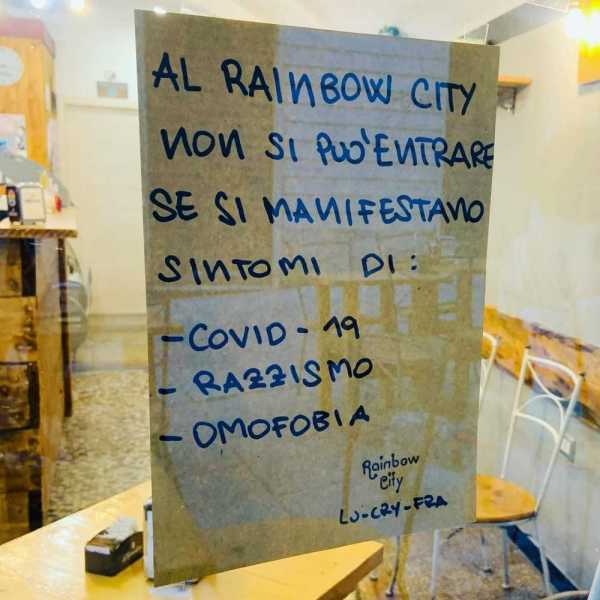 AL RAINBOW CITY
NON SI PUO' ENTRARE
SE SI MANIFESTANO
SINTOMI DI:
- COVID-19
- RAZZISMO
- OMOFOBIA
Rainbow
City
LU-CRY-FRA